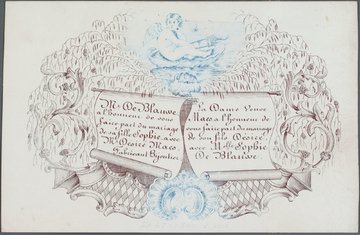 Mr De Blauwe
a l'honneur de vous
faire part du mariage
de sa fille Sophie, avec
Mr Désiré Maes,
Fabricant Bijoutier
La Dame Veuve
Maes a l'honneur de
vous faire part du mariage
de son fils Désiré,
avec Mlle Sophie
De Blauwe